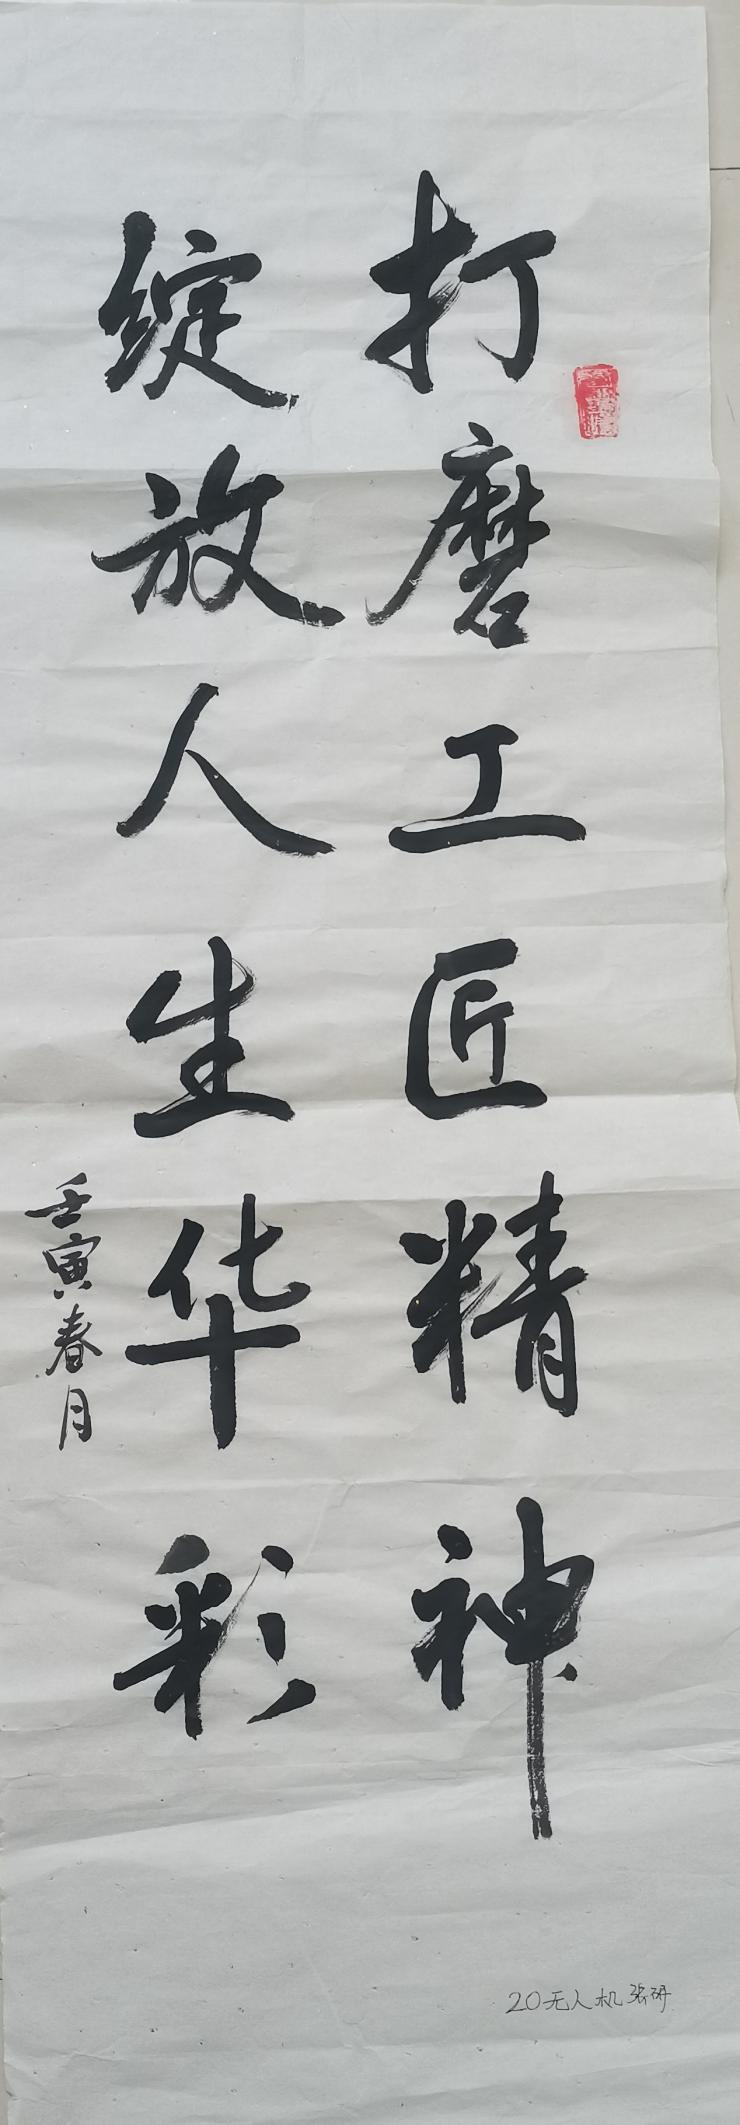 打磨工匠精神
绽放人生华彩
壬寅春月
20无人机 张研